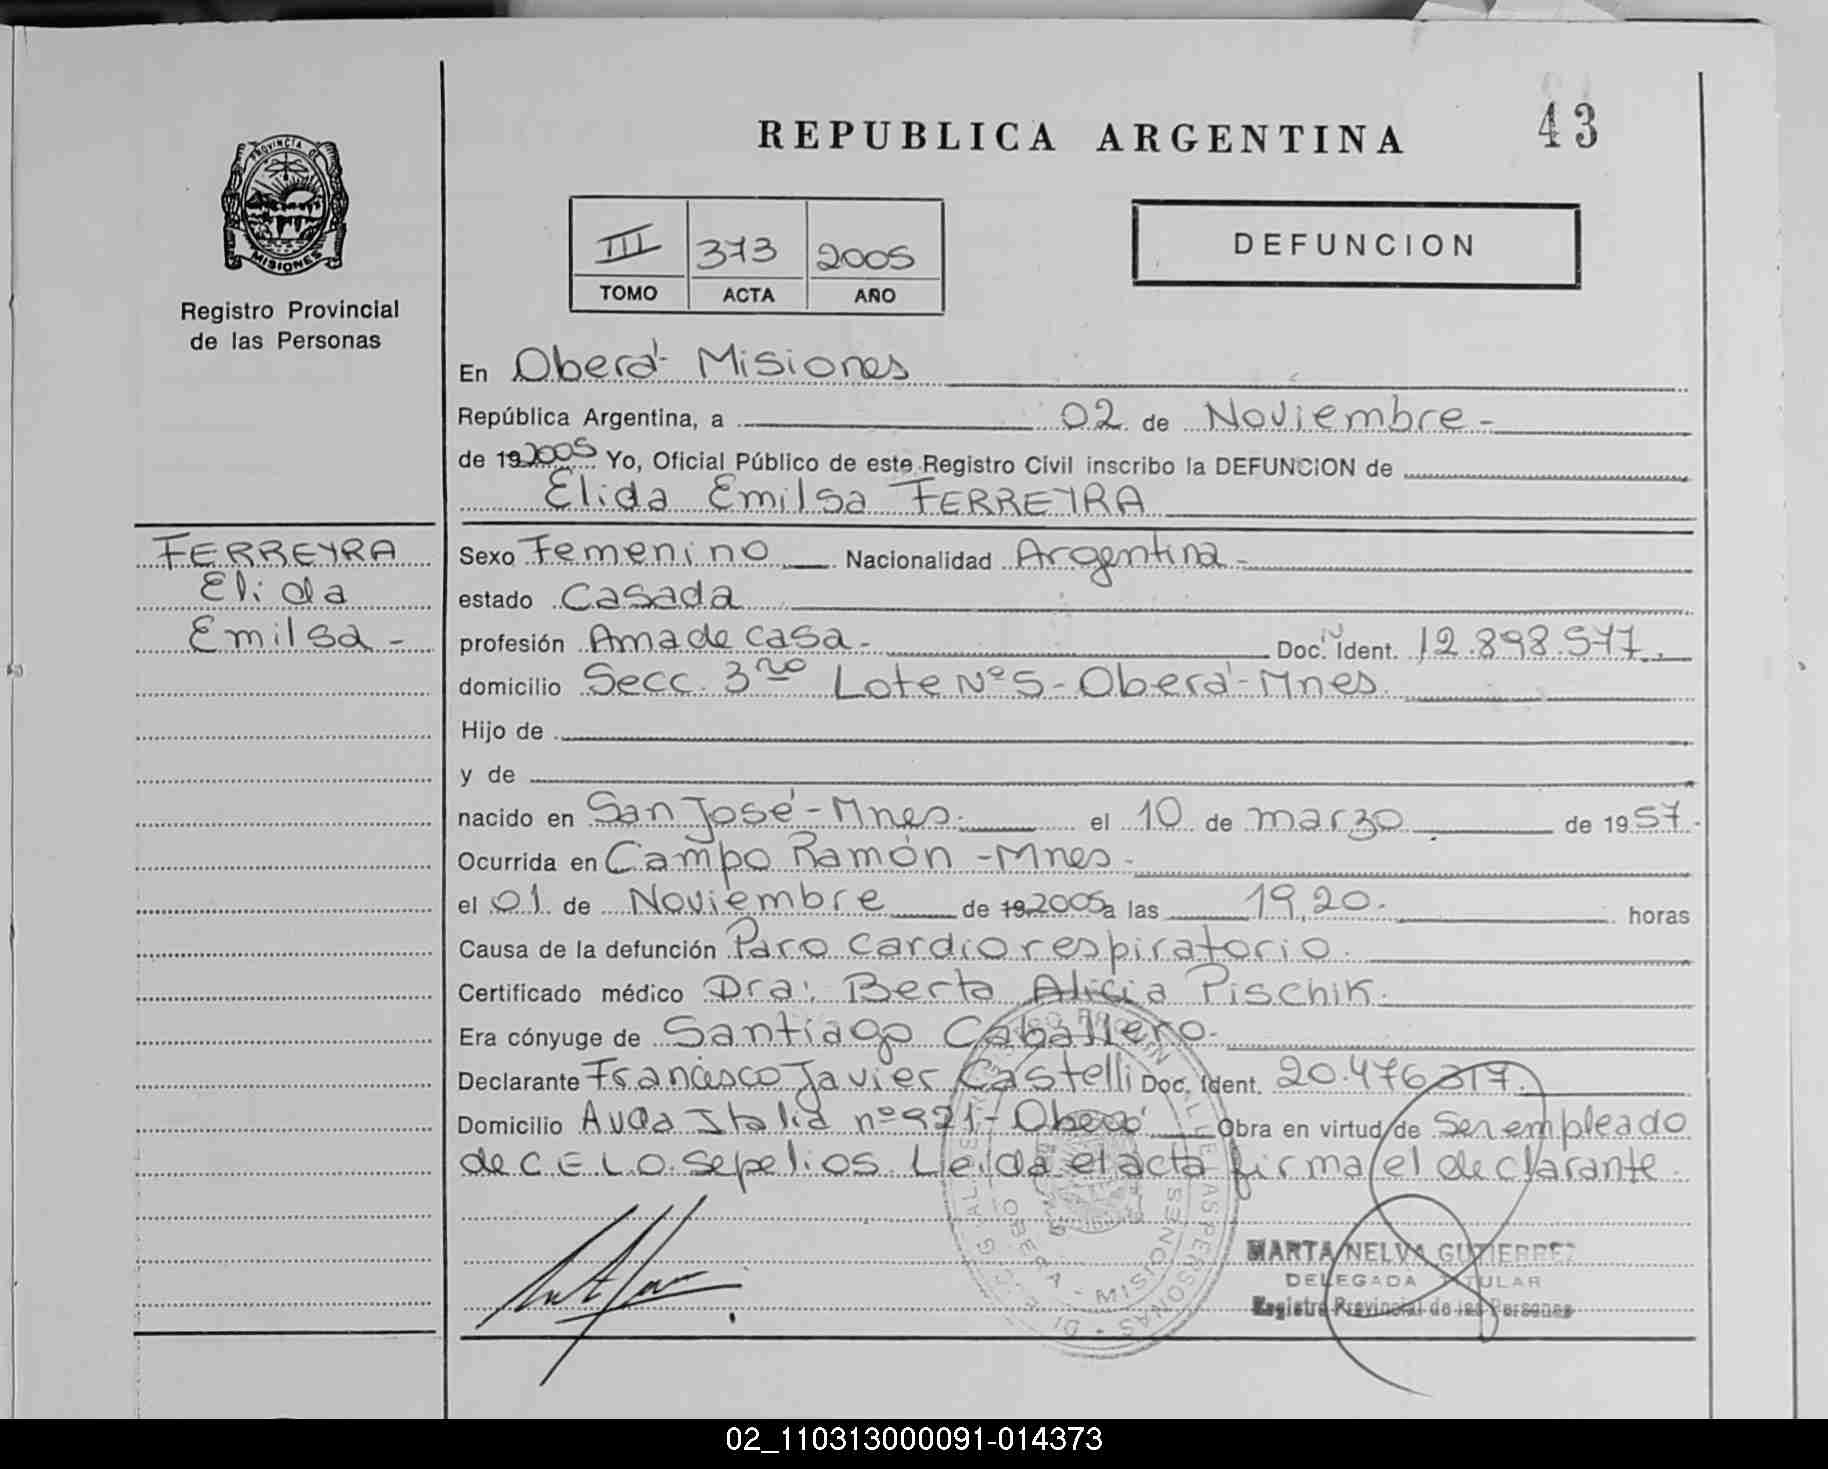 REPUBLICA ARGENTINA
43
PROVINCIA DE
MISIONES
Registro Provincial
de las Personas
III 373 2005
TOMO ACTA AÑO
DEFUNCION
En Oberá- Misiones
República Argentina, a 02 de Noviembre-
de 192005 Yo, Oficial Público de este Registro Civil inscribo la DEFUNCION de
Elida Emilsa FERREYRA
FERREYRA
Elida
Emilsa-
Sexo Femenino Nacionalidad Argentina-
estado Casada
profesión Ama de casa- Doc. Ident. 12.898.577.
domicilio Secc. 3ra Lote Nº5-Oberá-Mnes.
Hijo de
y de
nacido en San José-Mnes. el 10 de marzo de 1957.
Ocurrida en Campo Ramón-Mnes-
el 01 de Noviembre de 192005 a las 19,20. horas
Causa de la defunción Paro cardiorespiratorio.
Certificado médico Dra. Berta Alicia Pischik.
Era cónyuge de Santiago Caballero.
Declarante Francisco Javier Castelli Doc. Ident. 20.476.317.
Domicilio Avda Italia nº921-Oberá Obra en virtud de ser empleado
de C.E.L.O. Sepelios. Leída el acta firma el declarante.
OBERA - MISIONES
MARTA NELVA GUTIERREZ
DELEGADA TITULAR
Registro Provincial de las Personas
02_110313000091-014373